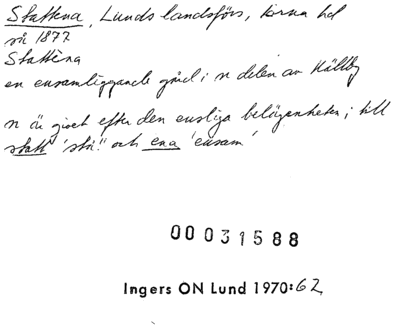 Stattena, Lunds landsförs, Torna hd
så 1877
Stattèna
en ensamliggande gård i n delen av Källby
n är givet efter den ensliga belägenheten; till
statt 'stå' och ena 'ensam'
00031588
Ingers ON Lund 1970:62